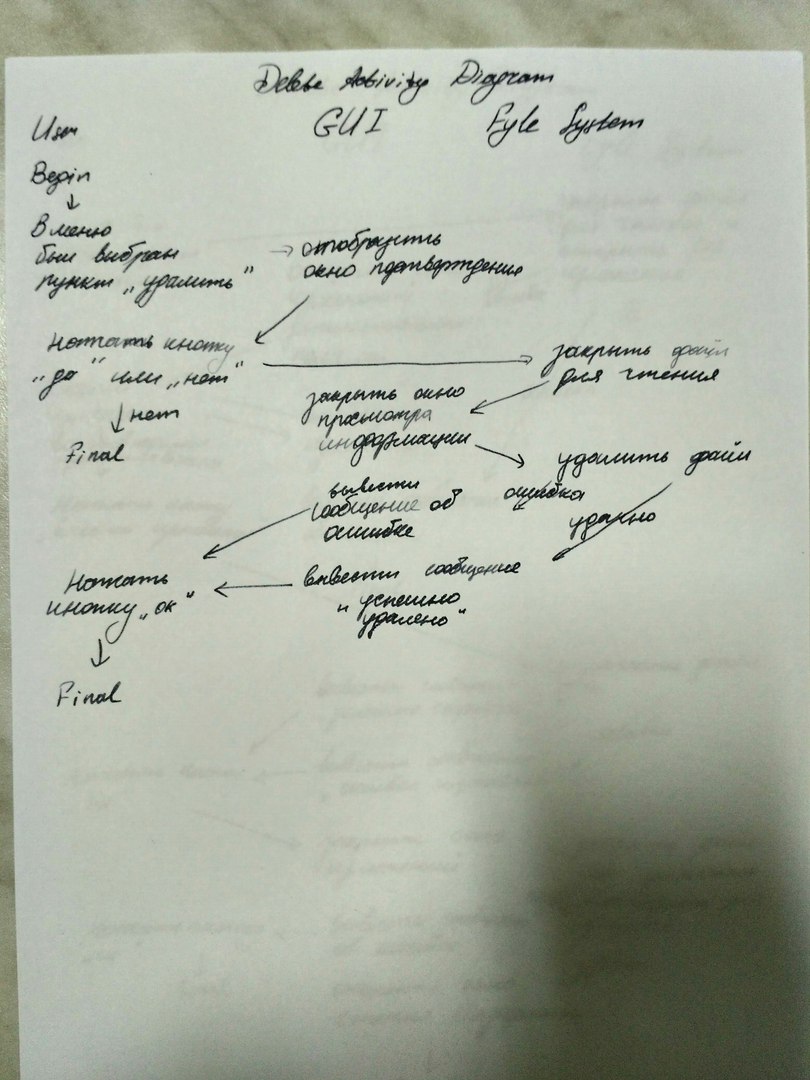 Delete Activity Diagram
User GUI Fyle System
Begin
В меню
был выбран
пункт „удалить"
отобразить
окно подтверждение
Нажать кнопку
„да" или „нет"
закрыть файл
для чтения
нет
Final
закрыть окно
просмотра
информации
удалить файл
ошибка
удачно
вывести
сообщение об
ошибке
вывести сообщение
„успешно
удалено"
Нажать
кнопку „ок"
Final